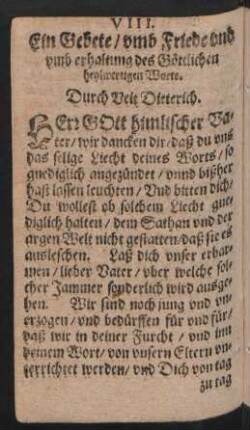 VIII.
Ein Gebete / vmb Friede vnd
vmb erhaltung des Göttlichen
heylwertigen Worts.
Durch Veit Dieterich.
HErr GOtt himlischer Va-
ter / wir dancken dir / daß du vns
das selige Liecht deines Worts / so
gnediglich angezündet / vnnd bißher
hast lassen leuchten / Vnd bitten dich /
Du wollest ob solchem Liecht gne-
diglich halten / dem Sathan vnd der
argen Welt nicht gestatten / daß sie es
ausleschen. Laß dich vnser erbar-
men / lieber Vater / vber welche sol-
cher Jammer sonderlich wird ausge-
hen. Wir sind noch jung vnd vn-
erzogen / vnd bedürffen für vnd für /
daß wir in deiner Furcht / vnd inn
deinem Wort / von vnsern Eltern vn-
terrichtet werden / vnd Dich von tag
zu tag